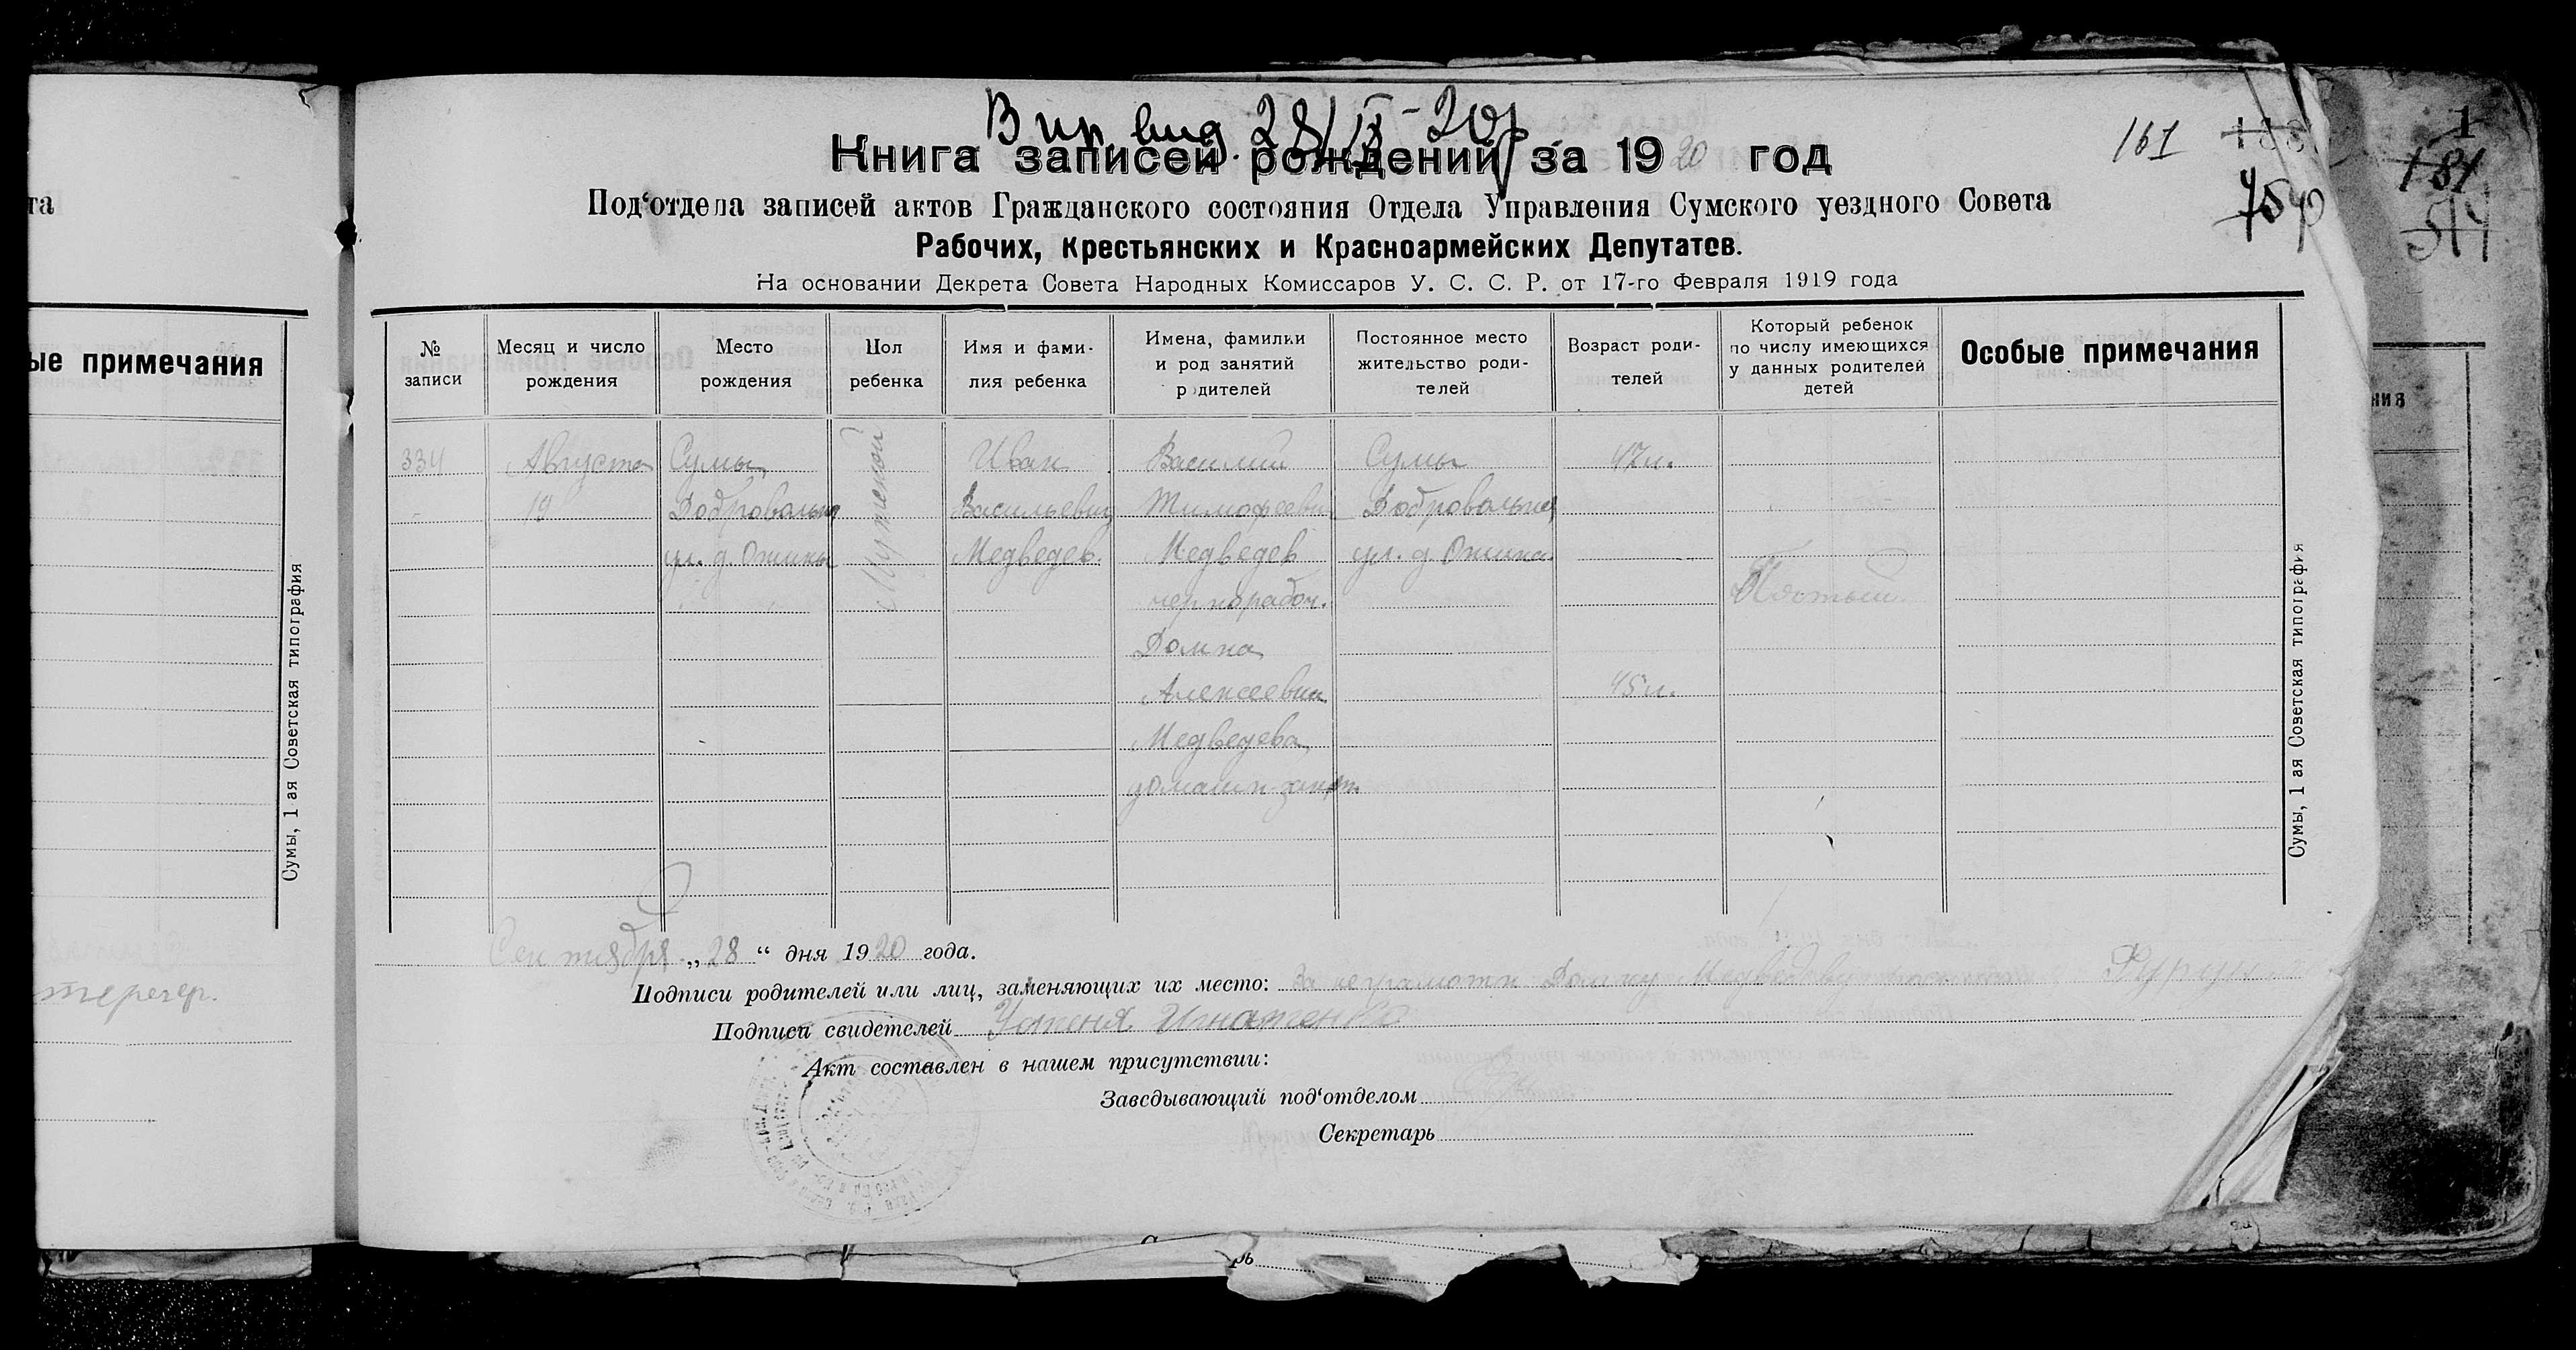 Вып. выд. 28/IX-20р
Книга записей рождений за 1920 год
161
Под‘отдела записей актов Гражданского состояния Отдела Управления Сумского уездного Совета
Рабочих, Крестьянских и Красноармейских Депутатов.
На основании Декрета Совета Народных Комиссаров У. С. С. Р. от 17-го Февраля 1919 года
та
ые примечания
Сумы, 1 ая Советская типография
№ записи
Месяц и число рождения
Место рождения
Пол ребенка
Имя и фами-
лия ребенка
Имена, фамилии
и род занятий
родителей
Постоянное место
жительство роди-
телей
Возраст роди-
телей
Который ребенок
по числу имеющихся
у данных родителей
детей
Особые примечания
334
Августа
19
Сумы
Добровольная
ул. д. Ожины
Мужской
Иван
Васильевич
Медведев.
Василий
Тимофеевич
Медведев
чернорабоч.
Домна
Алексеевна
Медведева
домашн.
Сумы
Добровольная
ул. д. Ожина
47 л.
45 л.
Пятый
Сумы, 1 ая Советская типография
Сентября „28“ дня 1920 года.
Подписи родителей или лиц, заменяющих их место: За неграмотн Домну Медведеву
Подписи свидетелей Игнатенко
Акт составлен в нашем присутствии:
Заведывающий под‘отделом
Секретарь
ния
181
514